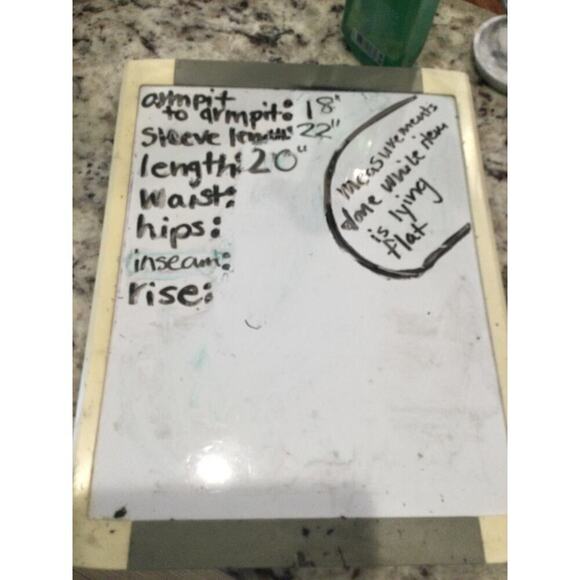 armpit
to armpit: 18"
Sleeve length: 22"
length: 20"
Waist:
hips:
inseam:
rise:
measurements
done while item
is lying
flat